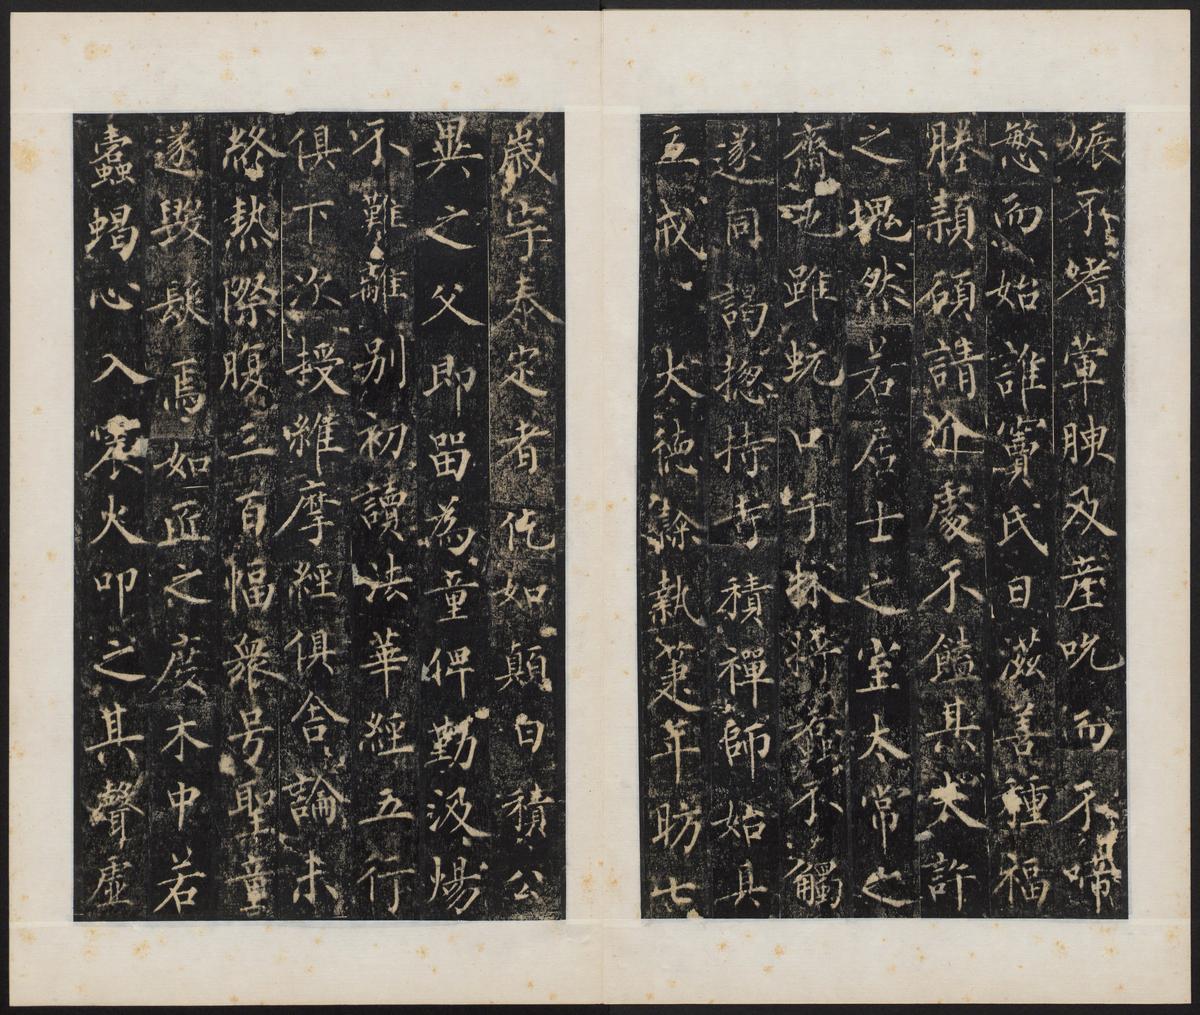 娠不嗜葷腴及產吮而不啼
慜而始誰竇氏日滋善種福
塍顙碩請近處不饐其大許
之塊然若居士之室太常之
齋也雖蚖口于株將蠚不觸
遂同謁揔持寺積禪師始具
五戒大德執筆年昉七
歲宇泰定者仡如顛白積公
異之父即留為童俾勤汲煬
不難離别初讀法華經五行
俱下次授維摩經俱舍論未
終熱際腹三百幅衆号聖童
遂毀髮焉如匠之度木中若
蠹蝎心入火叩之其聲虛